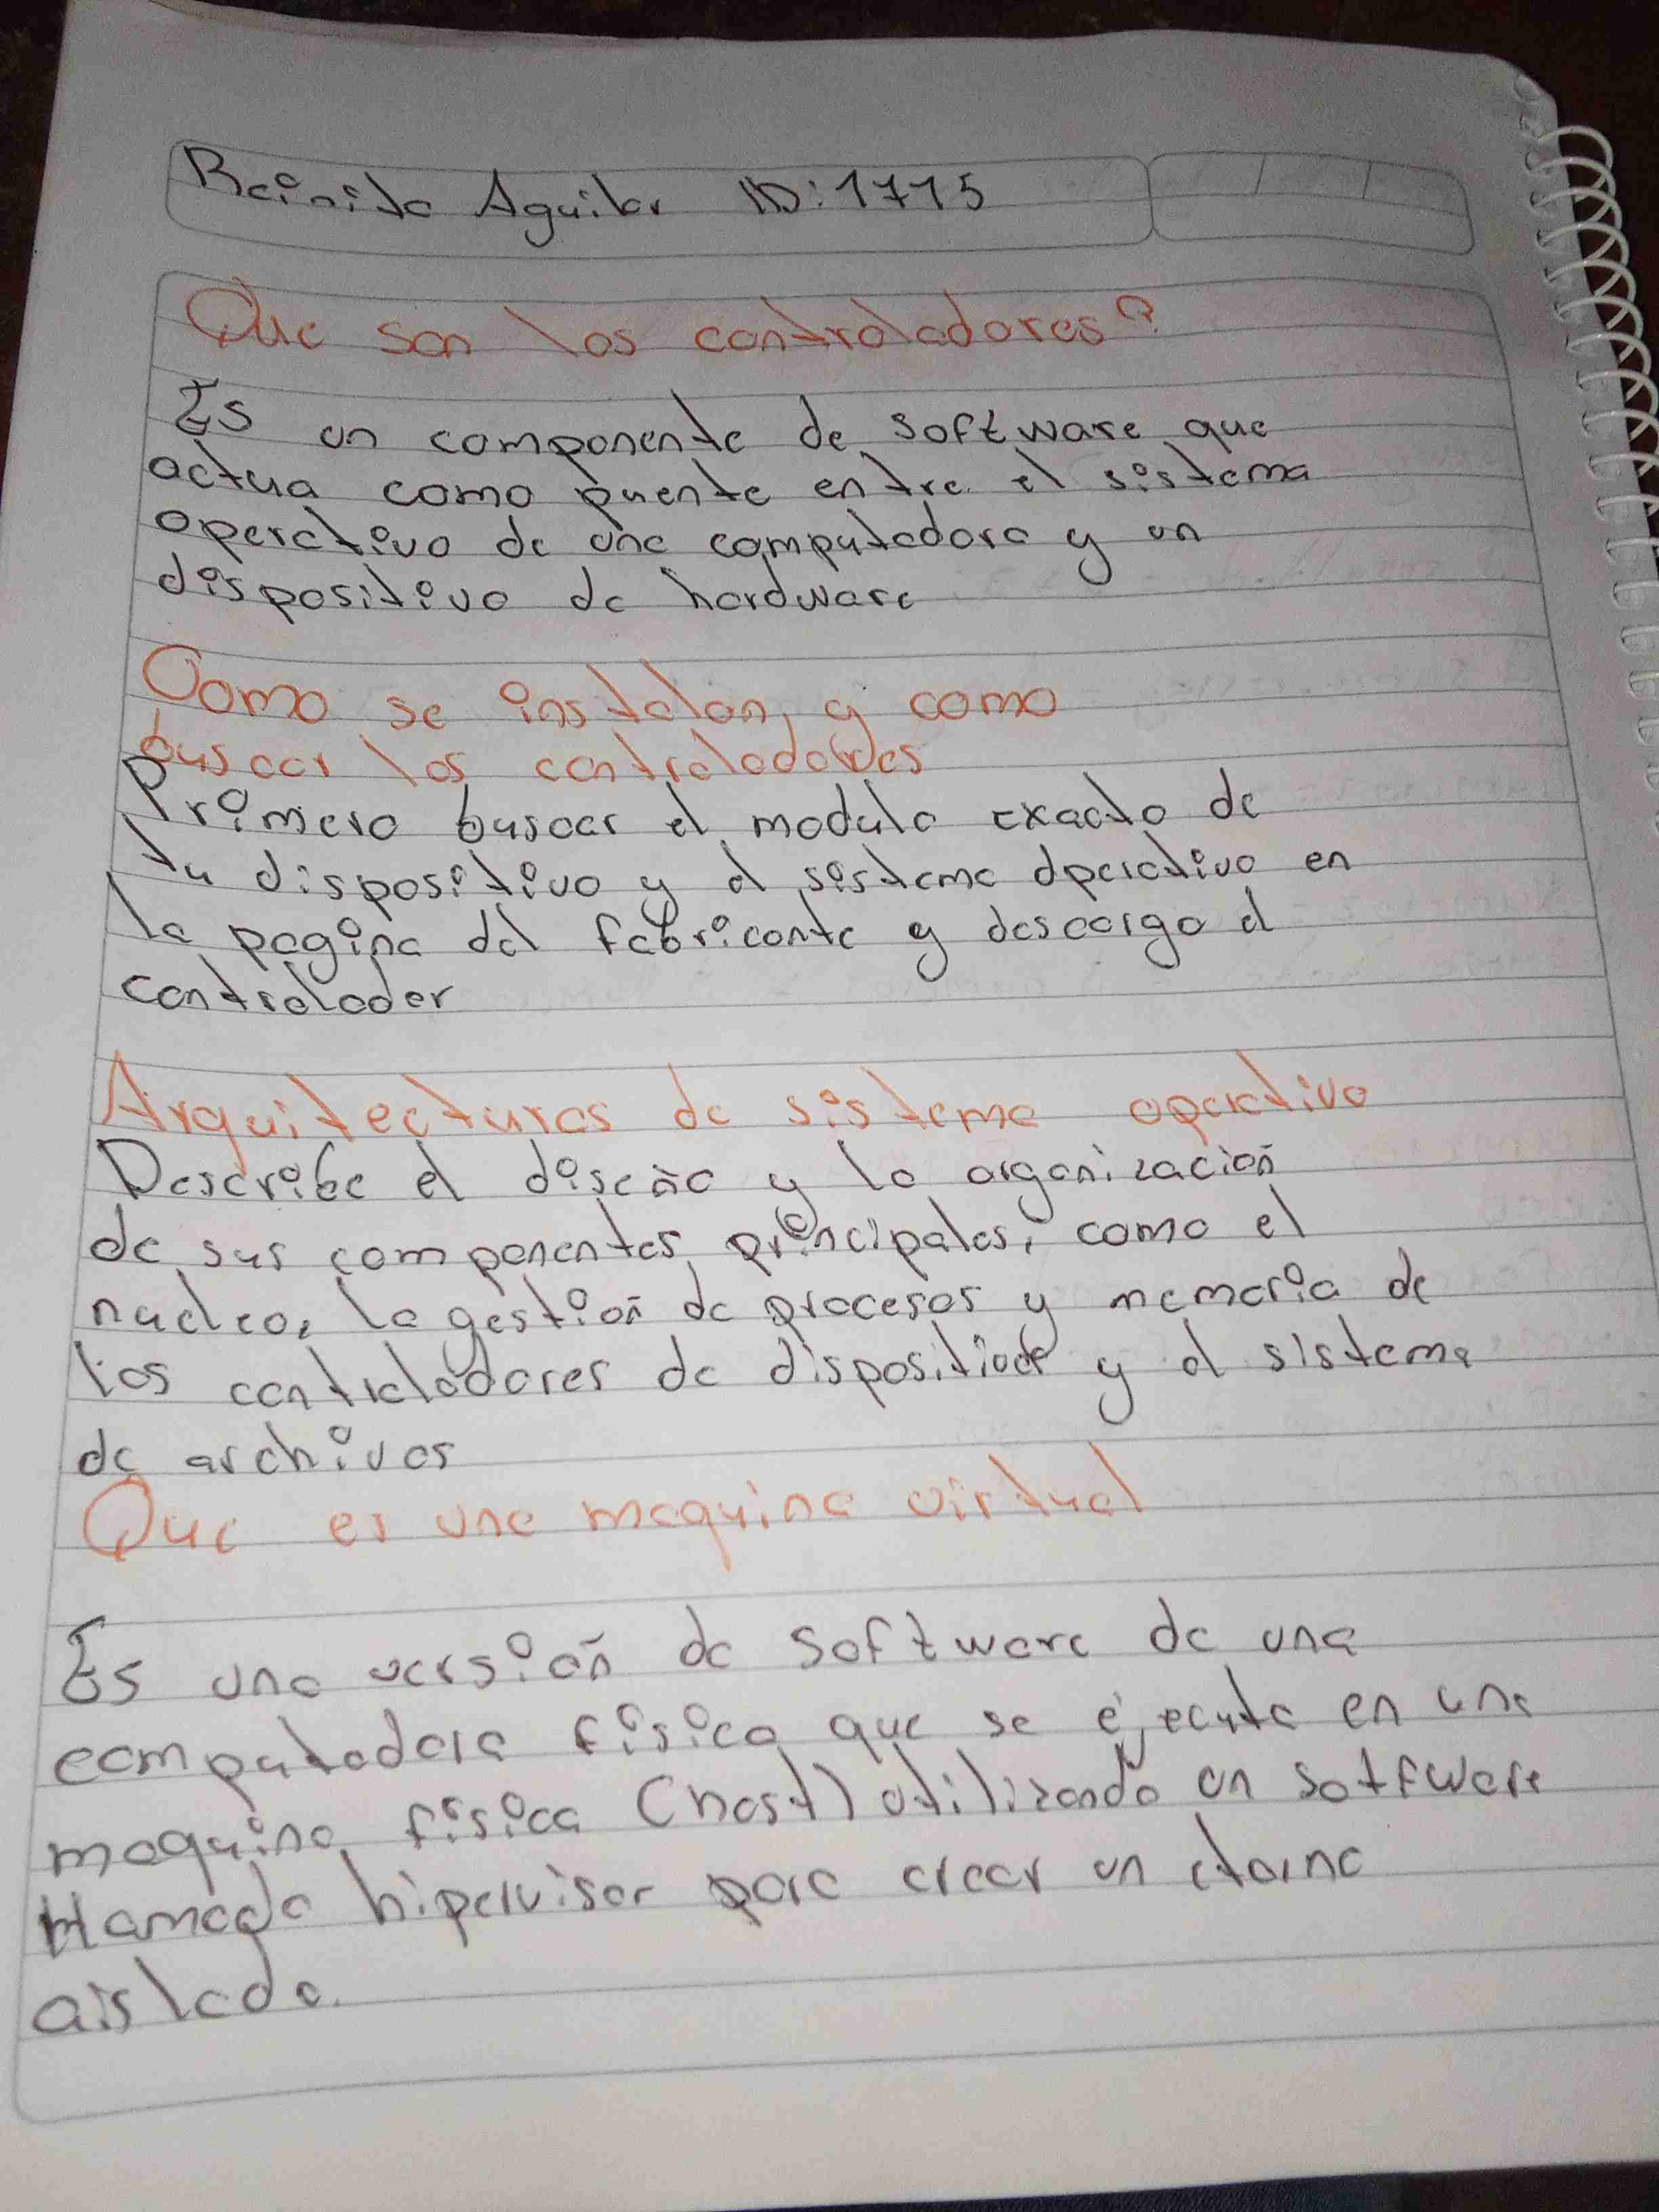 Beinila Aguilar ID: 1715
Que son los controladores?
Es un componente de software que
actua como puente entre el sistema
operativo de una computadora y un
dispositivo de hardware
Como se instalan, y como
buscar los controladores
Primero buscar el modulo exacto de
tu dispositivo y el sistema operativo en
la pagina del fabricante y descarga el
controlador
Arquitecturas de sistema operativo
Describe el diseño y la organización
de sus componentes principales, como el
nucleo, la gestión de procesos y memoria de
los controladores de dispositivos y el sistema
de archivos
Que es una maquina virtual
Es una versión de software de una
computadora física que se ejecuta en una
maquina física (host) utilizando un sotfware
llamado hipervisor para crear un etorno
aislado.